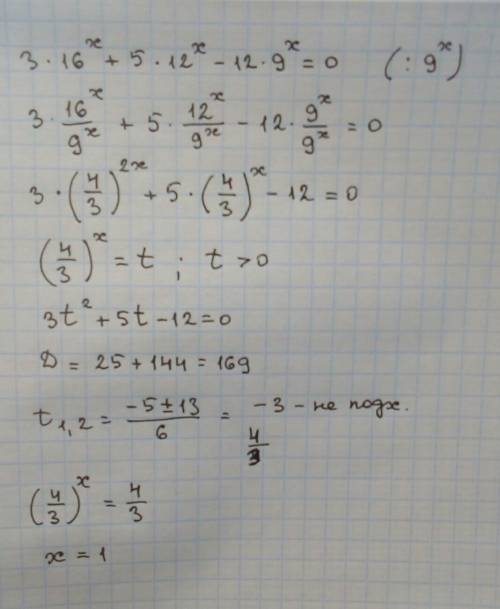 3 · 16^x + 5 · 12^x - 12 · 9^x = 0 (: 9^x)
3 · 16^x/9^x + 5 · 12^x/9^x - 12 · 9^x/9^x = 0
3 · (4/3)^2x + 5 · (4/3)^x - 12 = 0
(4/3)^x = t ; t > 0
3t^2 + 5t - 12 = 0
D = 25 + 144 = 169
t1,2 = (-5 ± 13)/6 = -3 - не подх.
4/3
(4/3)^x = 4/3
x = 1